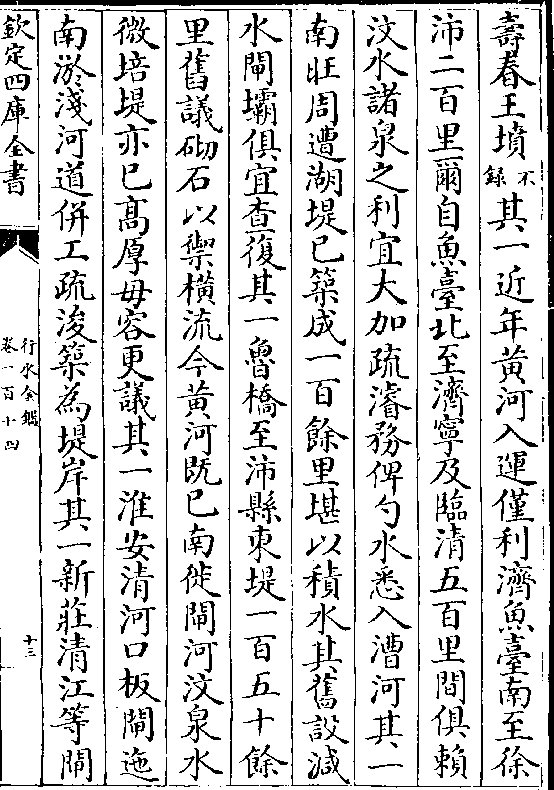 壽春王墳不錄其一近年黄河入運僅利濟魚臺南至徐
沛二百里爾自魚臺北至濟寧及臨清五百里間俱賴
汶水諸泉之利宜大加疏濬務俾勺水悉入漕河其一
南旺周遭湖堤已築成一百餘里堪以積水其舊設減
水閘壩俱宜查復其一魯橋至沛縣東堤一百五十餘
里舊議砌石以禦橫流今黄河既已南徙閘河汶泉水
微培堤亦已高厚毋容更議其一淮安清河口板閘迤
南淤淺河道併工疏浚築為堤岸其一新莊清江等閘
欽定四庫全書
行水金鑑
卷一百十四
十三